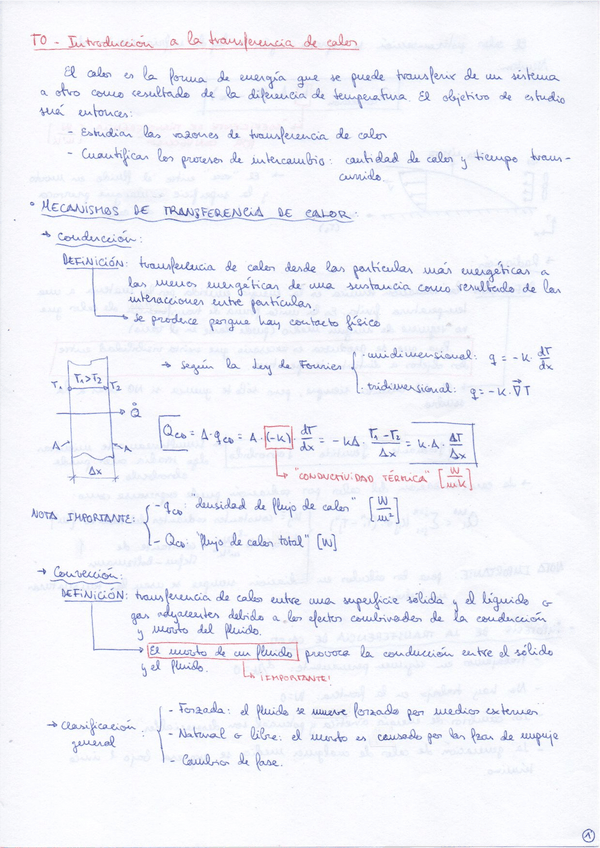 T0 - Introducción a la transferencia de calor
El calor es la forma de energía que se puede transferir de un sistema
a otro como resultado de la diferencia de temperatura. El objetivo de estudio
será entonces:
- Estudiar las razones de transferencia de calor
- Cuantificar los procesos de intercambio: cantidad de calor y tiempo trans-
currido.
° MECANISMOS DE TRANSFERENCIA DE CALOR:
→ Conducción:
DEFINICIÓN: transferencia de calor desde las partículas más energéticas a
las menos energéticas de una sustancia como resultado de las
interacciones entre partículas
→ se produce porque hay contacto físico
→ según la Ley de Fourier
· unidimensional: q = -K · dT/dx
· tridimensional: q = -K · ∇T
T₁ T₁>T₂ T₂
Q̇
A A
Δx
Qco = A · qco = A · (-K) · dT/dx = -KA · (T₁ - T₂)/Δx = K · A · ΔT/Δx
→ "CONDUCTIVIDAD TÉRMICA" [W/mK]
NOTA IMPORTANTE:
- qco: "densidad de flujo de calor" [W/m²]
- Qco: "flujo de calor total" [W]
→ Convección:
DEFINICIÓN: transferencia de calor entre una superficie sólida y el líquido o
gas adyacentes debido a los efectos combinados de la conducción
y mvnto del fluido.
→ El mvnto de un fluido provoca la conducción entre el sólido
y el fluido.
→ ¡IMPORTANTE!
→ Clasificación general
- Forzada: el fluido se mueve forzado por medios externos
- Natural o libre: el mvnto es causado por las fzas de empuje
- Cambios de fase.
1